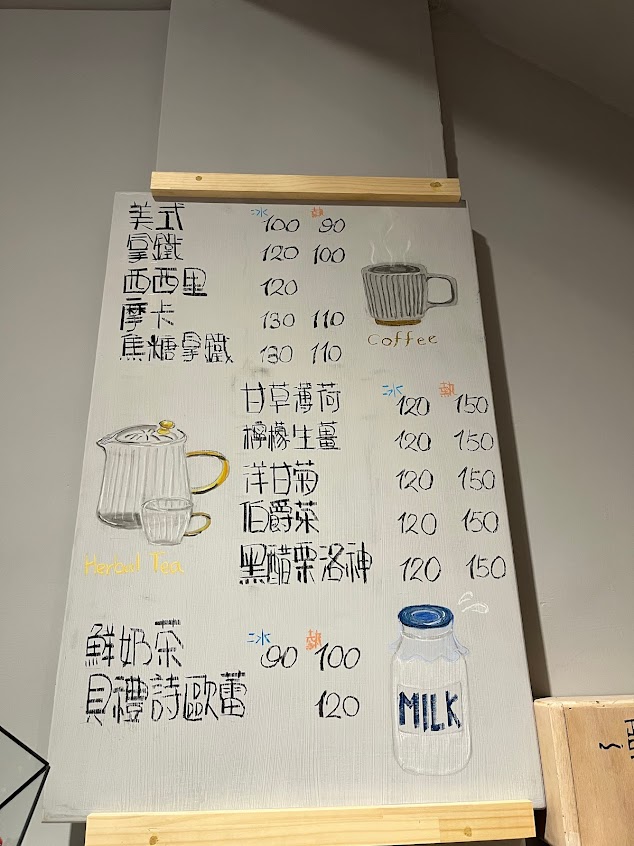 冰 熱
美式 100 90
拿鐵 120 100
西西里 120
摩卡 130 110
焦糖拿鐵 130 110
Coffee
冰 熱
甘草薄荷 120 150
檸檬生薑 120 150
洋甘菊 120 150
伯爵茶 120 150
黑醋栗洛神 120 150
Herbal Tea
冰 熱
鮮奶茶 90 100
貝禮詩歐蕾 120
MILK